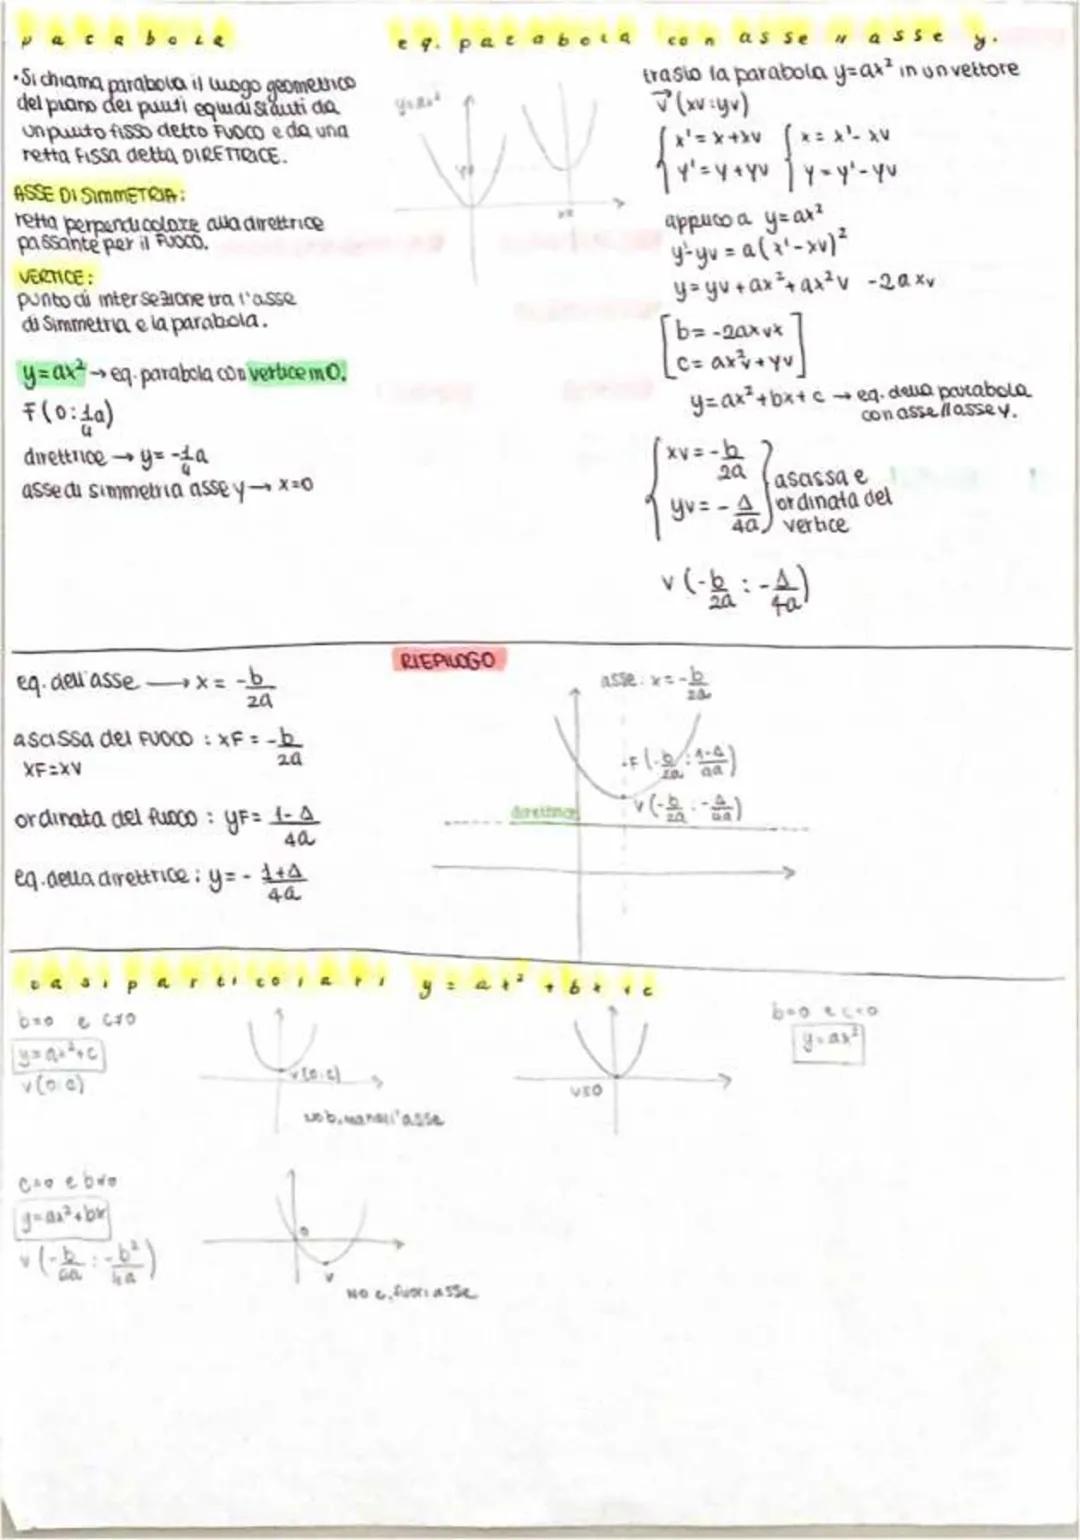 parabola
·Si chiama parabola il luogo geometrico
del piano dei punti equidistanti da
un punto fisso detto FUOCO e da una
retta fissa detta DIRETTRICE.
ASSE DI SIMMETRIA:
retta perpendicolare alla direttrice
passante per il FUOCO.
VERTICE:
punto di intersezione tra l'asse
di simmetria e la parabola.
y=ax² → eq. parabola con vertice in O.
F(0; 1/4 a)
direttrice → y= -1/4 a
asse di simmetria asse y → x=0
eq. parabola con asse // asse y.
y=ax²
yv
xv
traslo la parabola y=ax² in un vettore
v (xv; yv)
{x'= x+xv {x= x'- xv
y'= y+yv y=y'-yv
applico a y=ax²
y'-yv = a(x'-xv)²
y= yv + ax²+ ax²v -2axxv
[b= -2axvx
c= ax²v+yv]
y=ax²+bx+c → eq. della parabola
con asse // asse y.
{xv= -b/2a
yv= -Δ/4a} ascissa e
ordinata del
vertice
v (-b/2a ; -Δ/4a)
RIEPILOGO
eq. dell'asse → x= -b/2a
ascissa del FUOCO : xF = -b/2a
XF=XV
ordinata del fuoco : yF= 1-Δ/4a
eq. della direttrice : y= - 1+Δ/4a
asse: x= -b/2a
F (-b/2a ; 1-Δ/4a)
V (-b/2a ; -Δ/4a)
direttrice
casi particolari y=ax²+bx+c
b=0 e c≠0
y=ax²+c
v(0;c)
v(0;c)
no b, manca l'asse
V≡O
b=0 e c=0
y=ax²
c=0 e b≠0
y=ax²+bx
v (-b/2a ; -b²/4a)
O
V
NO c, fuori asse